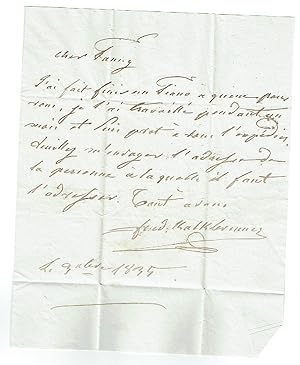 cher Fanny
J'ai fait finir un Piano à queue pour
vous, je l'ai travaillé pendant un
mois et suis prêt à vous l'expédier,
Veuillez m'envoyer l'adresse de
la personne a laquelle il faut
l'adresser. Tout à vous
fred Kalkbrenner
1835